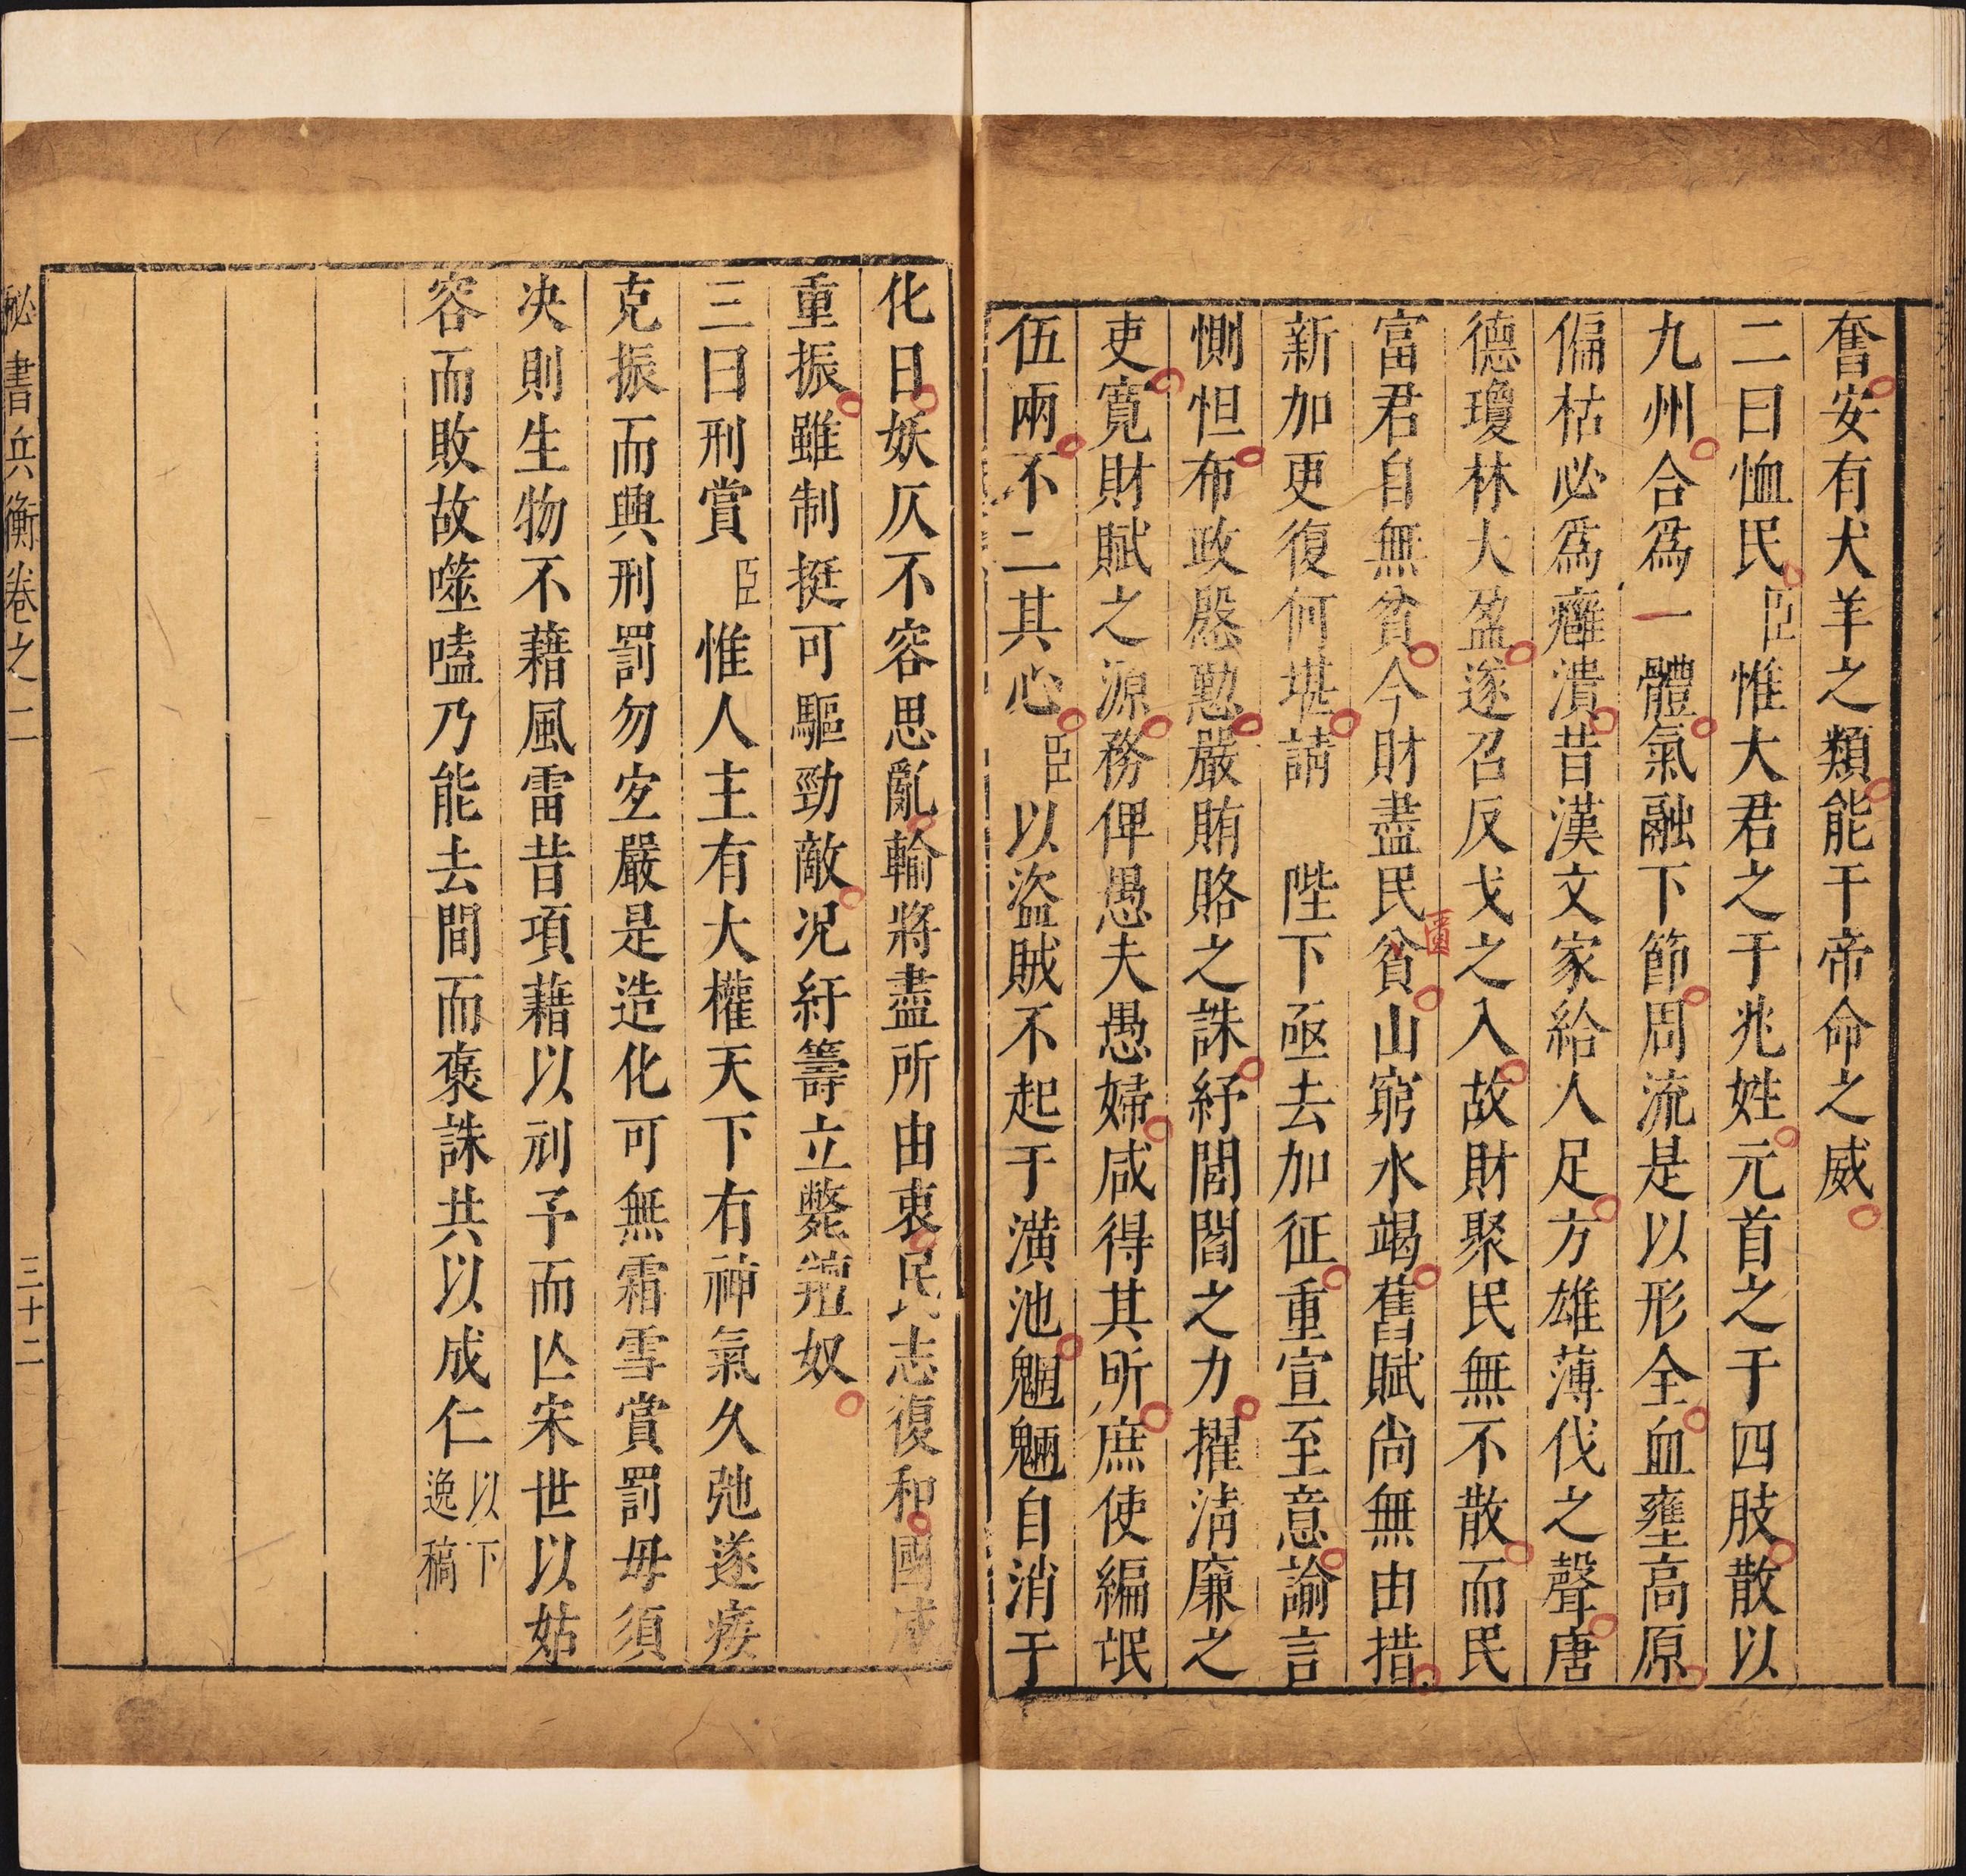 奮安有犬羊之類能干帝命之威
二曰恤民臣惟大君之于兆姓元首之于四肢散以
九州合爲一體氣融下節周流是以形全血壅高原
偏枯必爲癰潰昔漢文家給人足方雄薄伐之聲唐
德瓊林大盈遂召反戈之入故財聚民無不散而民
富君自無貧今財盡民貧山窮水竭舊賦尚無由措
新加更復何堪請 陛下亟去加征重宣至意諭言
惻怛布政慇懃嚴賄賂之誅紓閭閻之力擢淸廉之
吏寬財賦之源務俾愚夫愚婦咸得其所庶使編氓
伍兩不二其心臣以盜賊不起于潢池魍魎自消于
化日妖仄不容思亂輪將盡所由衷民志復和國威
重振雖制挺可驅勁敵況紆籌立斃羶奴
三曰刑賞臣惟人主有大權天下有神氣久弛遂痿
克振而興刑罰勿寔嚴是造化可無霜雪賞罰毋須
决則生物不藉風雷昔項藉以刓予而亾宋世以姑
容而敗故噬嗑乃能去間而褒誅共以成仁以下逸稿
秘書兵衡卷之二 三十二